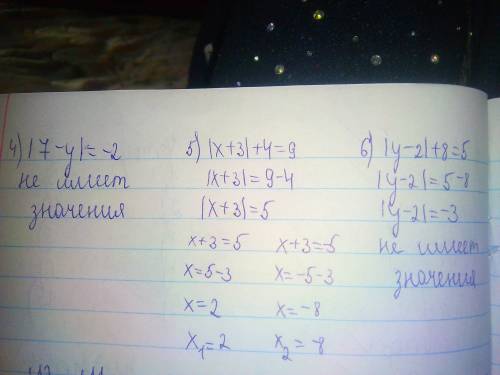 4) |7-y|=-2
не имеет
значения
5) |x+3|+4=9
|x+3|=9-4
|x+3|=5
x+3=5 x+3=-5
x=5-3 x=-5-3
x=2 x=-8
x₁=2 x₂=-8
6) |y-2|+8=5
|y-2|=5-8
|y-2|=-3
не имеет
значения